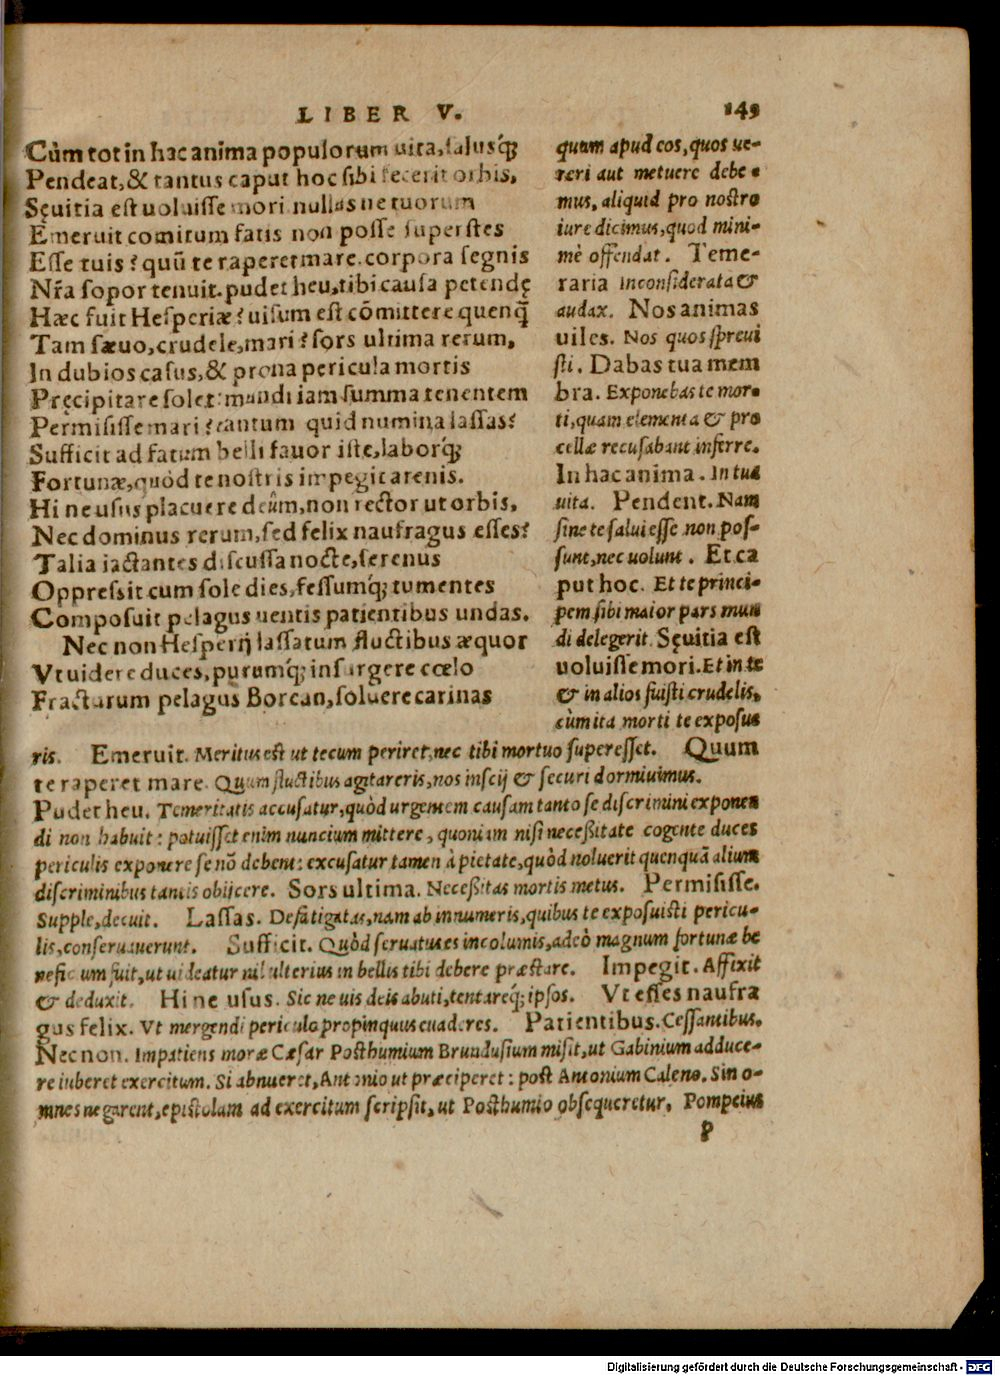 LIBER V. 149
Cùm tot in hac anima populorum uita, salusq́;
Pendeat, & tantus caput hoc sibi fecerit orbis,
Sęuitia est uoluisse mori nullas ne tuorum
Emeruit comitum fatis non posse superstes
Esse tuis? quū te raperet mare. corpora segnis
Nr̃a sopor tenuit. pudet heu, tibi causa petendę
Hæc fuit Hesperiæ? uisum est cōmittere quenq̃
Tam sæuo, crudele, mari? sors ultima rerum,
In dubios casus, & prona pericula mortis
Pręcipitare solet: mundi iam summa tenentem
Permisisse mari? tantum quid numina lassas?
Sufficit ad fatum belli fauor iste, laborq́;
Fortunæ, quòd te nostris impegit arenis.
Hi ne usus placuere deûm, non rector ut orbis,
Nec dominus rerum, sed felix naufragus esses?
Talia iactantes discussa nocte, serenus
Oppressit cum sole dies, fessumq́; tumentes
Composuit pelagus uentis patientibus undas.
Nec non Hesperij lassatum fluctibus æquor
Vt uidere duces, purumq́; insurgere cœlo
Fracturum pelagus Borean, soluere carinas
quum apud eos, quos ue-
reri aut metuere debe-
mus, aliquid pro nostro
iure dicimus, quod mini-
mè offendat. Teme-
raria inconsiderata &
audax. Nos animas
uiles. Nos quos spreui
sti. Dabas tua mem
bra. Exponebas te mor-
ti, quam elementa & pro
cellæ recusabant inferre.
In hac anima. In tua
uita. Pendent. Nam
sine te salui esse non pos-
sunt, nec uolunt. Et ca
put hoc. Et te princi-
pem sibi maior pars mun
di delegerit. Sęuitia est
uoluisse mori. Et in te
& in alios fuisti crudelis,
cùm ita morti te exposue
ris. Emeruit. Meritus est ut tecum periret, nec tibi mortuo superesset. Quum
te raperet mare. Quum fluctibus agitareris, nos inscij & securi dormiuimus.
Pudet heu. Temeritatis accusatur, quòd urgentem causam tanto se discrimini exponen
di non habuit: potuisset enim nuncium mittere, quoniam nisi necessitate cogente duces
periculis exponere se nō debent: excusatur tamen à pietate, quòd noluerit quenquā alium
discriminibus tantis obijcere. Sors ultima. Necessitas mortis metus. Permisisse.
Supple, decuit. Lassas. Defatigatas, nam ab innumeris, quibus te exposuisti pericu-
lis, conseruauerunt. Sufficit. Quòd seruatus es incolumis, adeò magnum fortunæ be
neficium fuit, ut uideatur nil ulterius in bellis tibi debere præstare. Impegit. Affixit
& deduxit. Hi ne usus. Sic ne uis deis abuti, tentareq́; ipsos. Vt esses naufra
gus felix. Vt mergendi periculo propinquus euaderes. Patientibus. Cessantibus.
Nec non. Impatiens moræ Cæsar Posthumium Brundusium misit, ut Gabinium adduce-
re iuberet exercitum. Si abnueret, Antonio ut præciperet: post Antonium Caleno. Sin o-
mnes negarent, epistolam ad exercitum scripsit, ut Posthumio obsequeretur. Pompeius
P
Digitalisierung gefördert durch die Deutsche Forschungsgemeinschaft - DFG